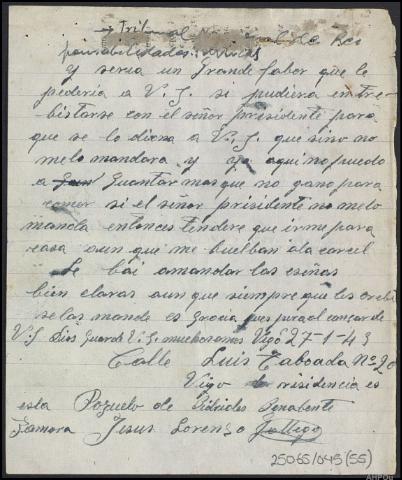 y Tribunal de Res
ponsabilidades
Y seria un Grande fabor que le
pederia a V. S. si pudiera entre
bistarse con el señor presidente para
que se lo diera a V. S. que sino no
melo mandara y yo aqui no puedo
a Guantar mas que no gano para
comer si el señor presidente no melo
manda entonces tendere que irme para
casa aun que me buelban ala carcel
Le bai amandar las esiñas
bien claras aun que siempre que les
selas mande es Gracia que
V. S. Dios Guarde V. S. muchos anos Vigo 27-1-43
Calle Luis Taboada Nº 20
Vigo de risidencia es
esta Pozuelo de Bidriales Benabente
Zamora Jesus Lorenzo Gallego
25065/045(55)
AHPOu